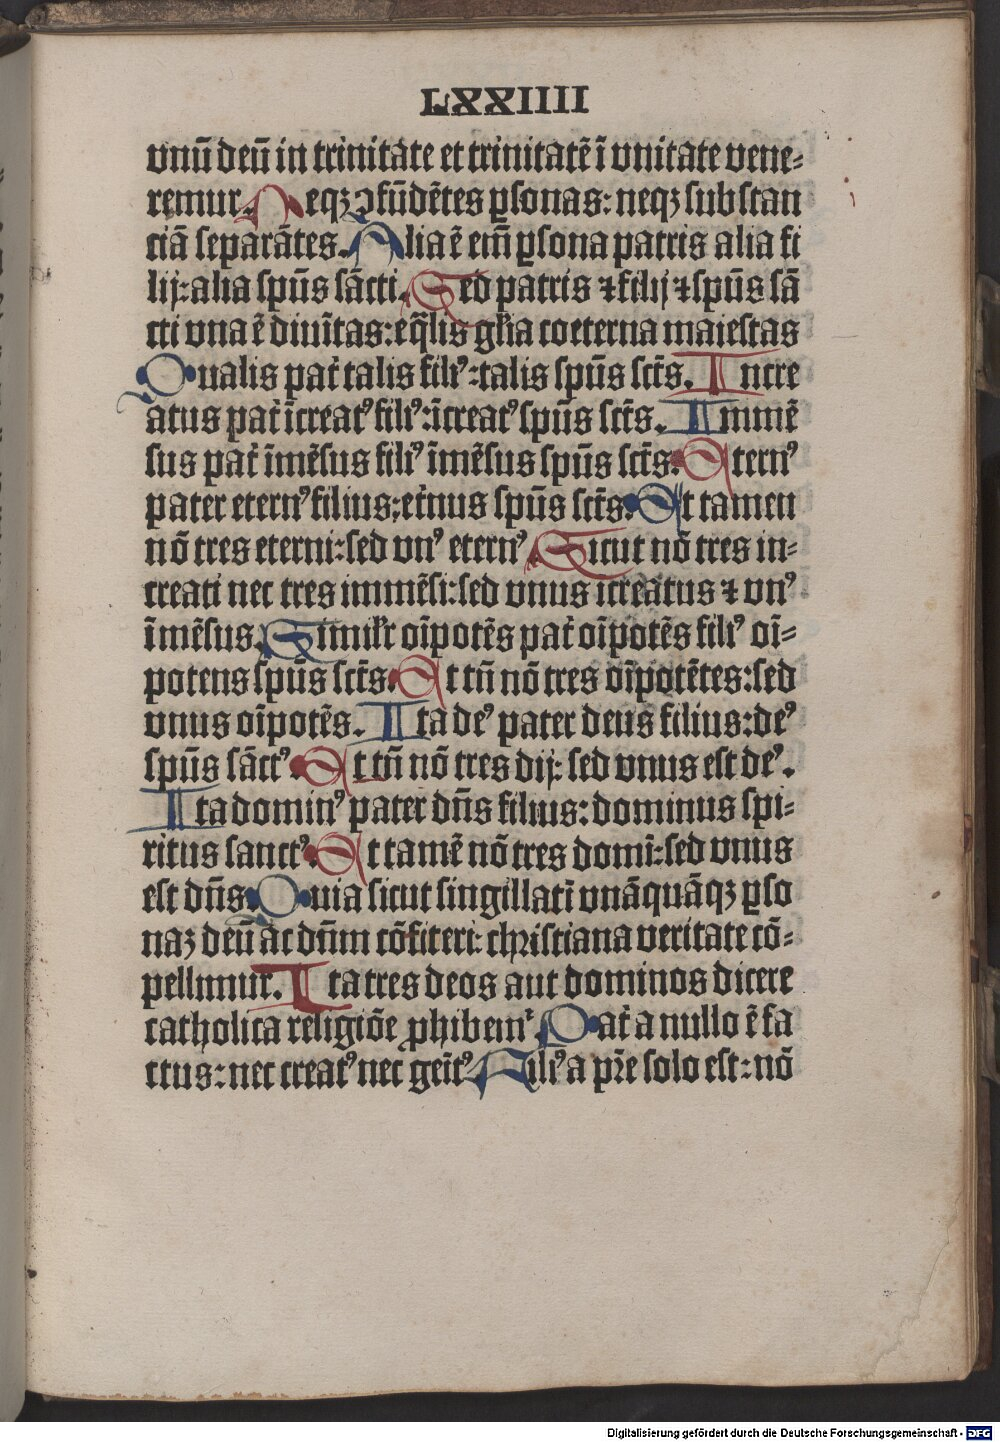 LXXIIII
vnū deū in trinitate et trinitatē ī vnitate vene⸗
remur. Neqꝫ ↄfūdētes ꝑsonas: neqꝫ substan
ciā separātes. Alia ē em̄ ꝑsona patris alia fi
lij: alia spūs sācti. Sed patris ⁊ filij ⁊ spūs sā
cti vna ē diuītas: eq̄lis gl̄ia coeterna maiestas
Qualis pat̄ talis filiꝰ: talis spūs sct̄s. Incre
atus pat̄ īcreatꝰ filiꝰ: īcreatꝰ spūs sct̄s. Immē
sus pat̄ īmēsus filiꝰ īmēsus spūs sct̄s. Eternꝰ
pater eternꝰ filius: et̄nus spūs sct̄s. Et tamen
nō tres eterni: sed vnꝰ eternꝰ Sicut nō tres in⸗
creati nec tres immēsi: sed vnus icreatus ⁊ vnꝰ
īmēsus. Simil̄r oīpotēs pat̄ oīpotēs filiꝰ oī⸗
potens spūs sct̄s. Et tn̄ nō tres oīpotētes: sed
vnus oīpotēs. Ita deꝰ pater deus filius: deꝰ
spūs sāctꝰ. Et tn̄ nō tres dij: sed vnus est deꝰ.
Ita dominꝰ pater dn̄s filius: dominus spi⸗
ritus sanctꝰ. Et tamē nō tres domī: sed vnus
est dn̄s. Quia sicut singillatī vnāquāqꝫ ꝑso
naꝫ deū ac dn̄m cōfiteri: christiana veritate cō⸗
pellimur. Ita tres deos aut dominos dicere
catholica religiōe ꝓhibemꝰ. Pat̄ a nullo ē fa
ctus: nec creatꝰ nec geītꝰ. Filiꝰ a pr̄e solo est: nō
Digitalisierung gefördert durch die Deutsche Forschungsgemeinschaft - DFG